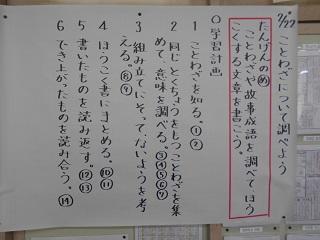 7/27 ことわざについて調べよう
たんげんのめ
ことわざや故事成語を調べて、ほう
こくする文章を書こう。
○学習計画
1 ことわざを知る。①②
2 同じとくちょうをもつことわざを集
めて、意味を調べる。③④⑤⑥⑦
3 組み立てにそって、ないようを考
える。⑧⑨
4 ほうこく書にまとめる。⑩⑪
5 書いたものを読み返す。⑫⑬
6 でき上がったものを読み合う。⑭